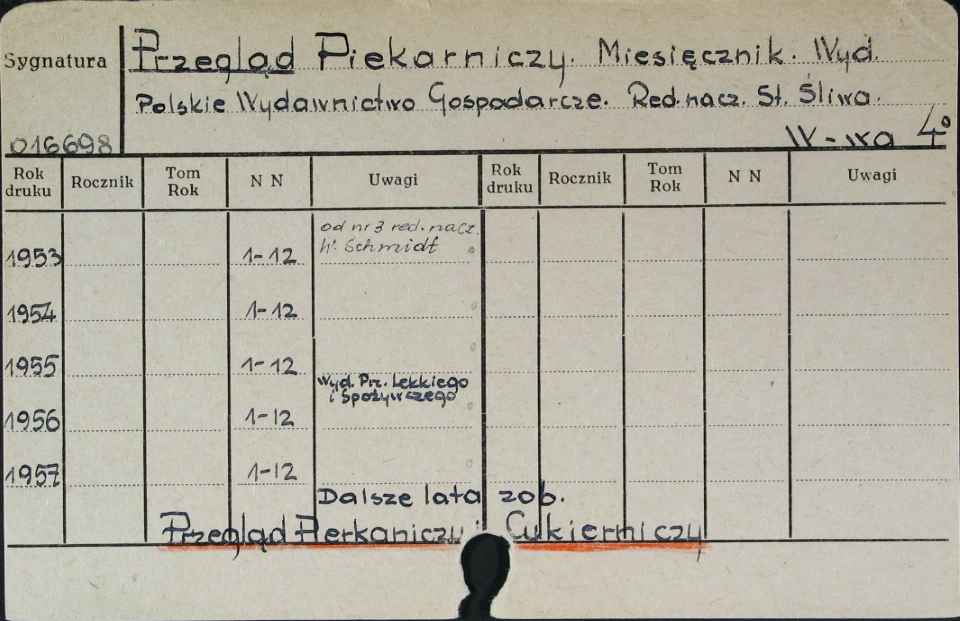 Sygnatura
Przegląd Piekarniczy. Miesięcznik. Wyd.
Polskie Wydawnictwo Gospodarcze. Red. nacz. St. Śliwa.
016698
W-wa 4°
Rok druku Rocznik Tom Rok N N Uwagi Rok druku Rocznik Tom Rok N N Uwagi
od nr 3 red. nacz.
W. Schmidt
1953 1-12
1954 1-12
1955 1-12
Wyd. Prz. Lekkiego
i Spożywczego
1956 1-12
1957 1-12
Dalsze lata zob.
Przegląd Pierkaniczy i Cukierniczy